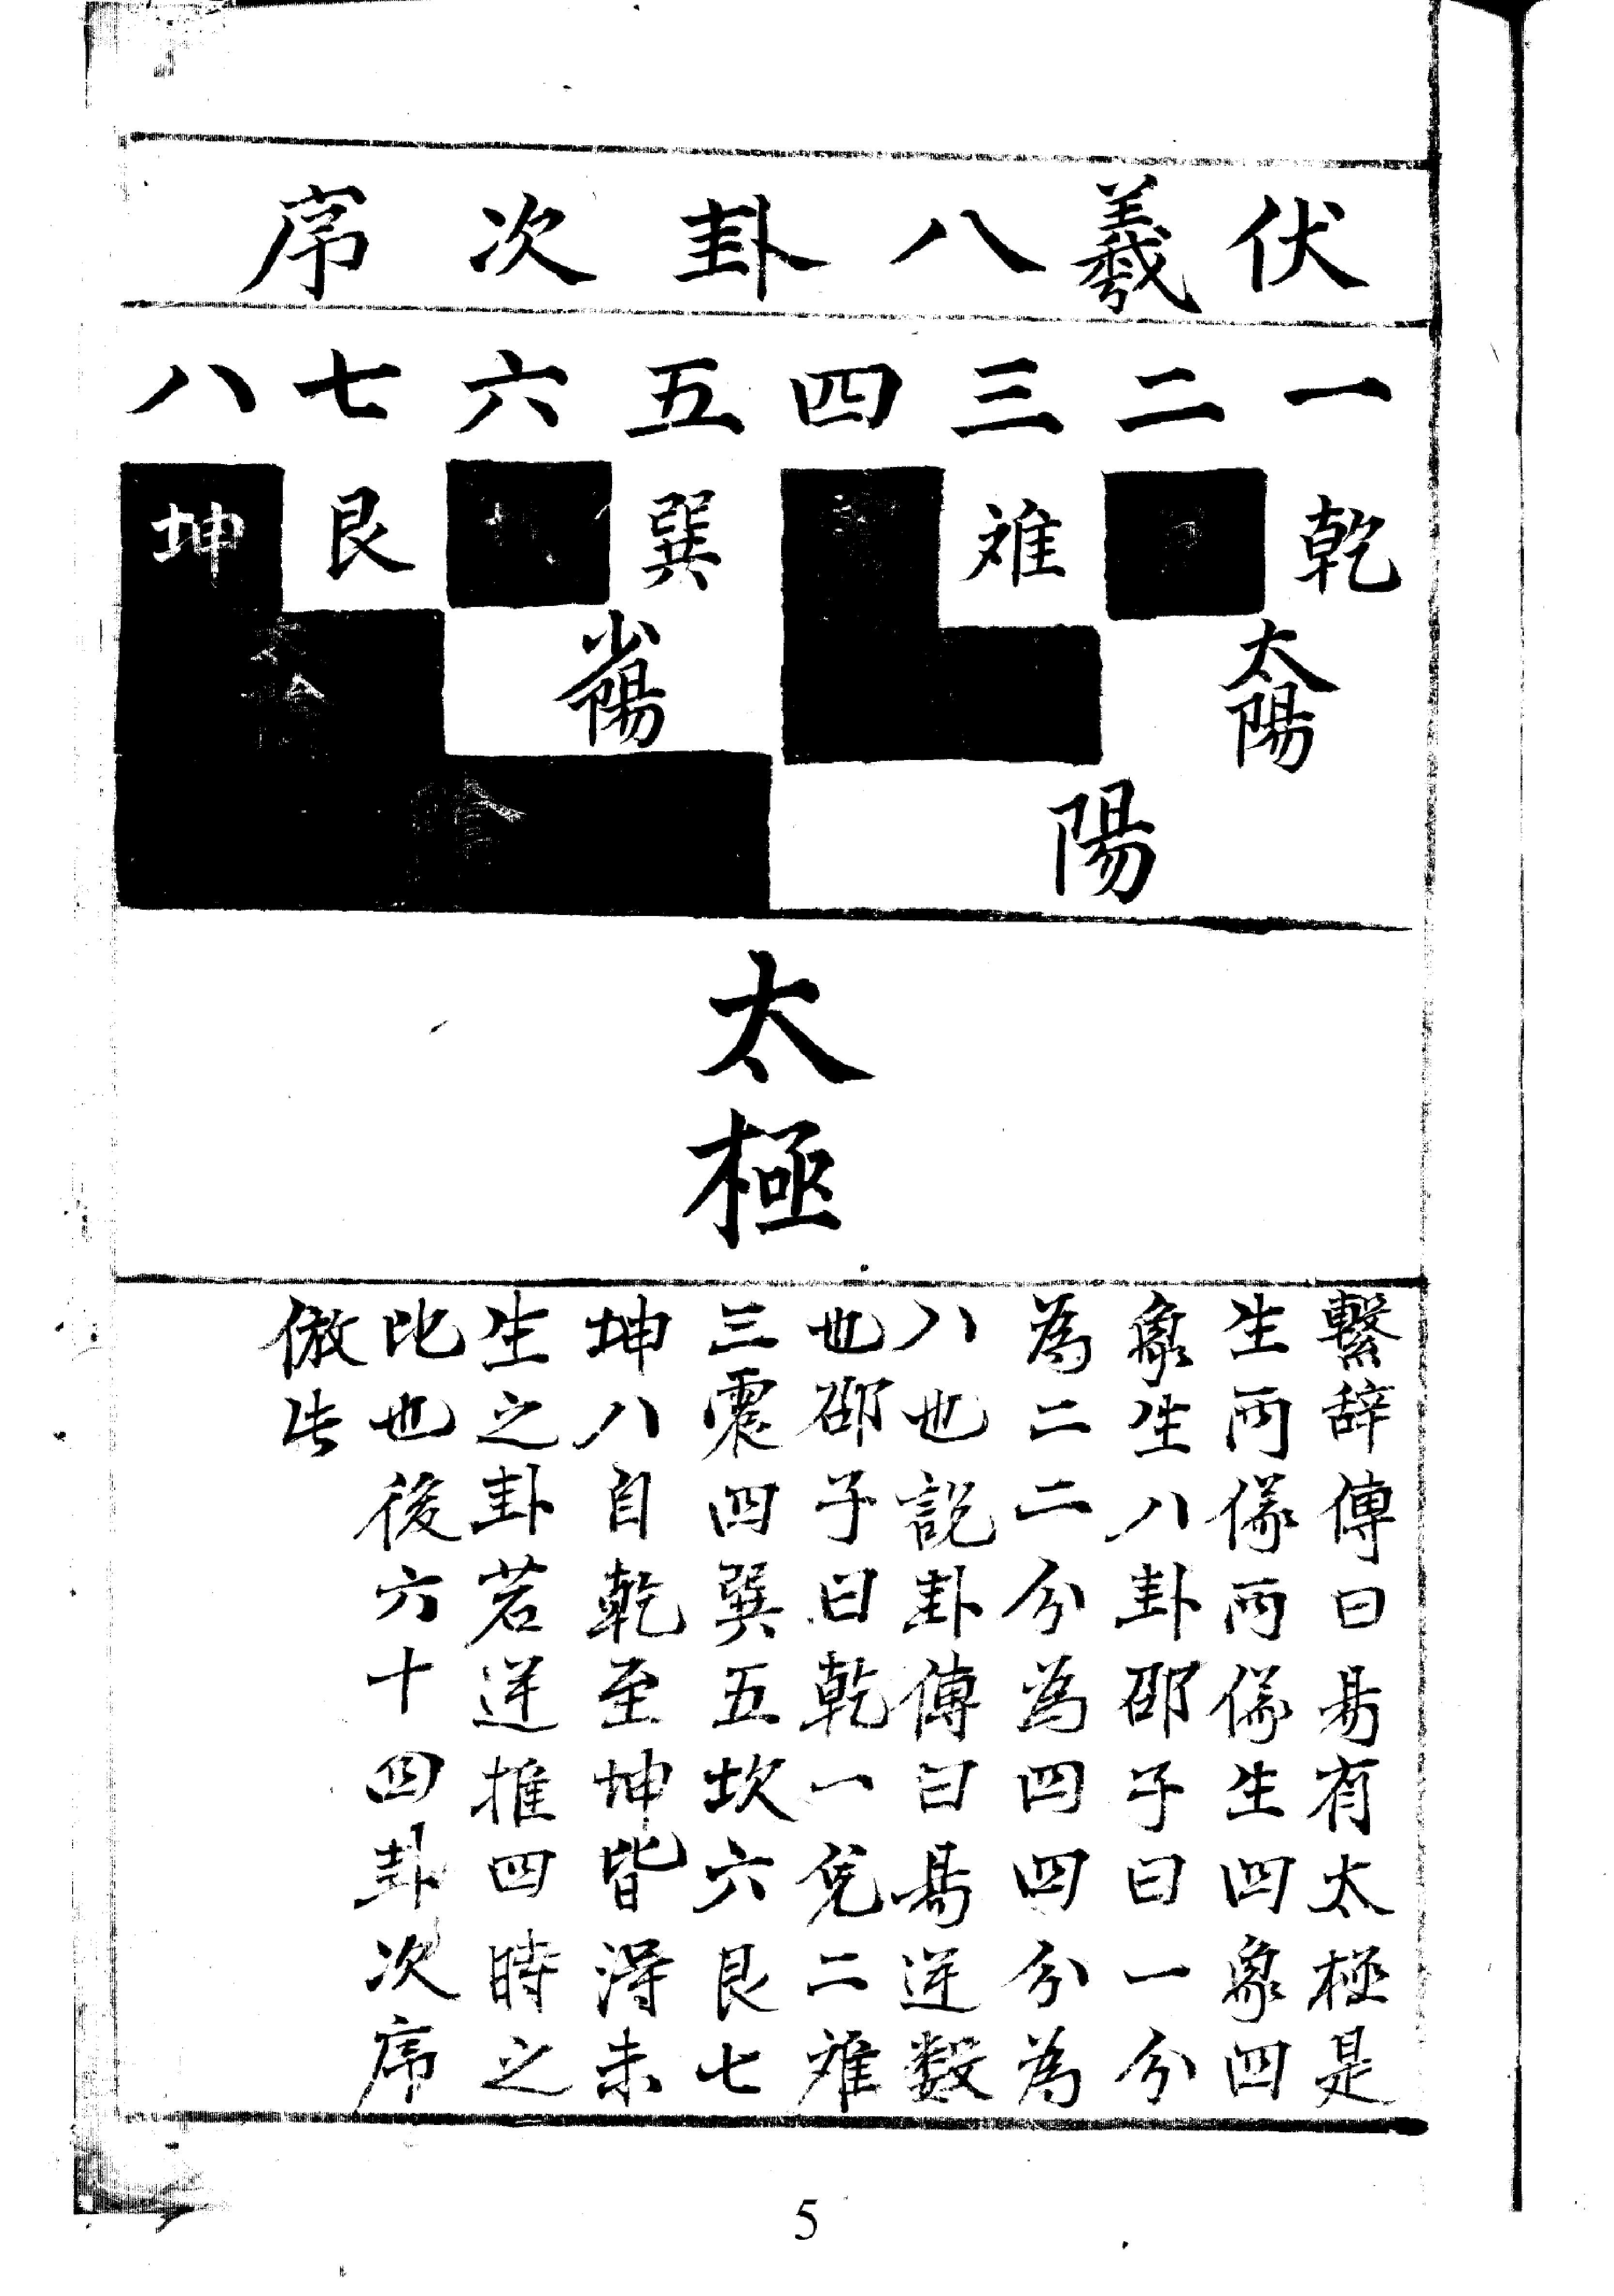 伏羲八卦次序
一二三四五六七八
乾 離 巽 坎 艮 坤
太陽 少陽 太陰
陽 陰
太極
繫辞傳曰易有太極是
生兩儀兩儀生四象四
象生八卦邵子曰一分
為二二分為四四分為
八也説卦傳曰易逆数
也邵子曰乾一兌二離
三震四巽五坎六艮七
坤八自乾至坤皆得未
生之卦若逆推四時之
比也後六十四卦次序
倣此
5